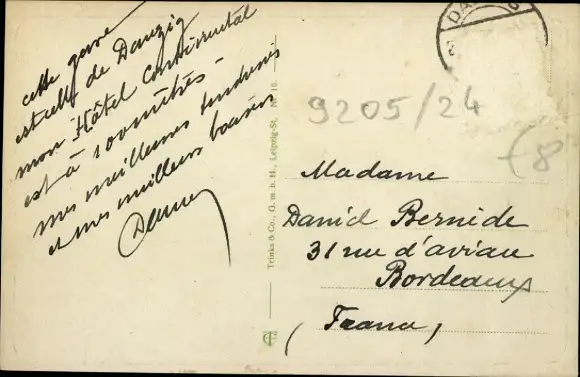 cette gare
est celle de Danzig
mon Hôtel Continental
est à 100 mètres -
mes meilleures tendresses
et mes meilleurs baisers
Trinks & Co., G. m. b. H., Leipzig-St. No. 16.
DA
9205/24
€8
Madame
Daniel Bernide
31 rue d'aviau
Bordeaux
(France)